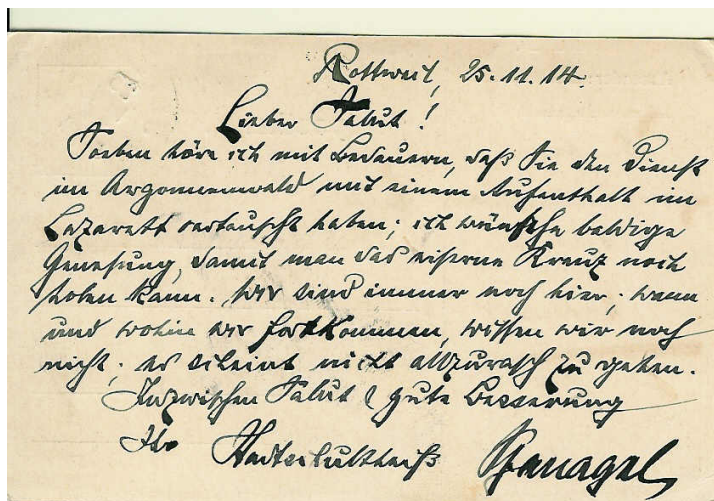 Rottweil, 25.11.14.
Lieber Salut!
Soeben höre ich mit Bedauern, daß Sie den Dienst
im Argonnenwald mit einem Aufenthalt im
Lazarett vertauscht haben; ich wünsche baldige
Genesung, damit man das eiserne Kreuz noch
holen kann. Wir sind immer noch hier; wann
und wohin wir fortkommen, wissen wir noch
nicht; es scheint nicht allzurasch zu gehen.
Inzwischen Salut & gute Besserung
Ihr Stadtschultheiß